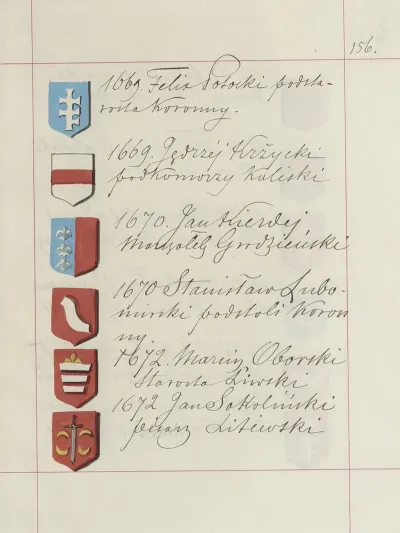 156.
1669. Felix Potocki podsta-
rosta Koronny.
1669. Jędrzéj Krzycki
podkomorzy Kaliski
1670. Jan Kierdej
Marszałek Grodzieński
1670 Stanisław Lubo-
mirski podstoli Koron
ny.
1672. Marcin Oborski
Starosta Liwski
1672 Jan Sokoliński
pisarz Litewski